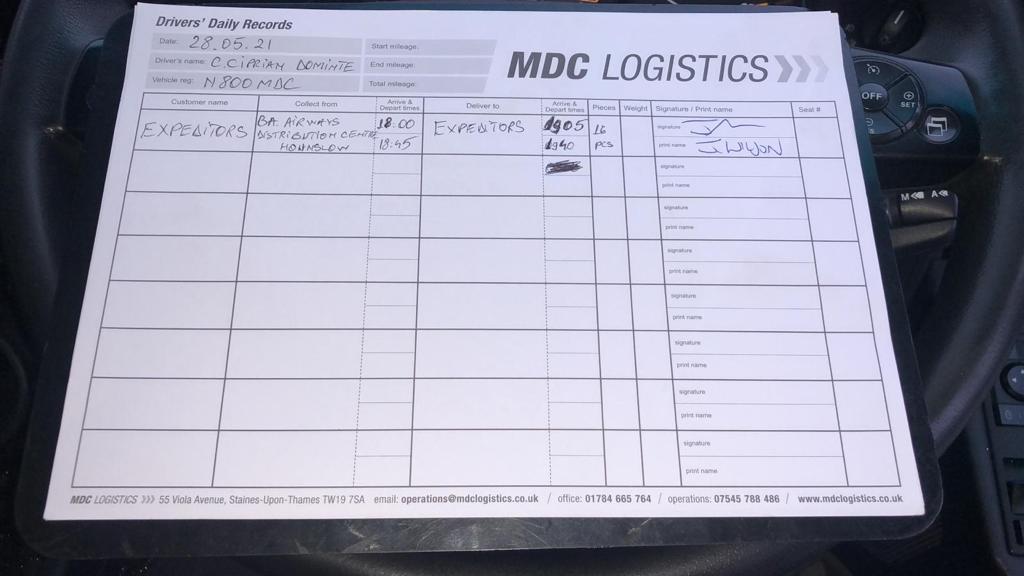 Drivers' Daily Records
Date: 28.05.21
Start mileage:
Driver's name: C.CIPRIAN DOMINTE
End mileage:
Vehicle reg: N800MDC
Total mileage:
MDC LOGISTICS
Customer name Collect from Arrive & Depart times Deliver to Arrive & Depart times Pieces Weight Signature / Print name Seal #
EXPEDITORS
BA AIRWAYS
DISTRIBUTION CENTRE
HOUNSLOW
18:00
18:45
EXPEDITORS
1905
1940
16
PCS
signature
print name J. WILSON
signature
print name
signature
print name
signature
print name
signature
print name
signature
print name
signature
print name
signature
print name
MDC LOGISTICS 55 Viola Avenue, Staines-Upon-Thames TW19 7SA email: operations@mdclogistics.co.uk / office: 01784 665 764 / operations: 07545 788 486 / www.mdclogistics.co.uk
OFF
SET
M A